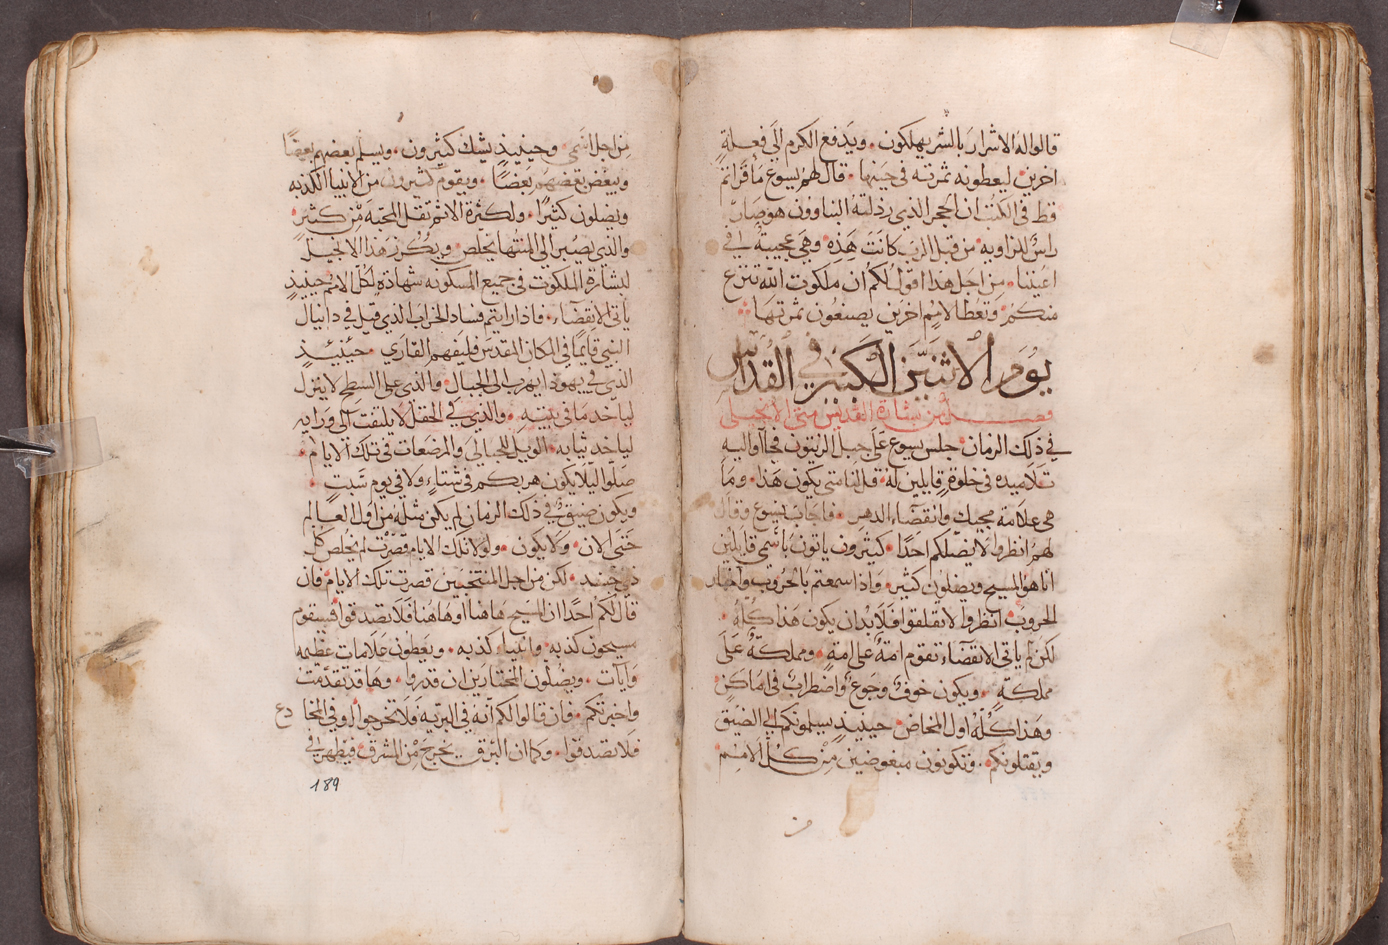 قالوا له الاشرار بالشر يهلكون . ويدفع الكرم الي فعلةٍ
اخرين ليعطونه ثمرته في حينها . قال لهم يسوع ما قراتم
قط في الكتب ان الحجر الذي رذلته البناوون هو صار
راس للزاويه من قبل الرب كانت هذه وهي عجيبة في
اعيننا . من اجل هذا اقول لكم ان ملكوت الله تنزع
منكم وتعطا لامم اخرين يصنعون ثمرتها
يوم الاثنين الكبير في القداس
فصل من بشارة القديس متي الانجيلي
في ذلك الزمان جلس يسوع على جبل الزيتون فجآوا اليه
تلاميده في خلوةٍ قايلين له قل لنا متى يكون هذا . وما
هي علامة مجيك وانقضاء الدهر . فاجاب يسوع وقال
لهم انظروا لا يضلكم احدًا . كثيرون ياتون باسمي قايلين
انا هو المسيح ويضلون كثير . واذا سمعتم بالحروب واخبار
الحروب انظروا لا تقلقوا فلابد ان يكون هذا كله .
لكن لم ياتي الانقضاء تقوم امة على امةٍ . ومملكة على
مملكةٍ . ويكون خوف وجوع واضطراب في اماكن
وهذا كله اول المخاض . حينيدٍ يسلمونكم الي الضيق
ويقتلونكم . وتكونون مبغوضين من كل الامم
من اجل اسمي وحينيذٍ يشك كثيرون . ويسلم بعضهم بعضًا
ويبغض بعضهم بعضًا . ويقوم كثيرون من الانبيا الكدبه
ويضلون كثيرًا . ولكثرة الاثم تقل المحبة من كثير
والدي يصبر الي المنتها يخلص ويكرز هذا الانجيل
لبشارة الملكوت في جميع المسكونه شهادة لكل الامم حينيذٍ
ياتي الانقضآء . فاذا رايتم فساد الخراب الذي قيل في دانيال
النبي قايمًا في المكان المقدس فليفهم القاري . حينيذٍ
الذي في يهودا يهرب الى الجبال . والذي على السطح لا ينزل
لياخد ما في بيته . والذي في الحقل لا يلتفت الى ورايه
لياخد ثيابه . الويل للحبالي والمرضعات في تلك الايام .
صلوا ليلا يكون هربكم في شتاءٍ ولا في يوم سبتٍ .
ويكون ضيق في ذلك الزمان لم يكن مثله من اول العالم
حتى الان . ولا يكون . ولولا تلك الايام قصرت لم يخلص كل
ذي جسد . لكن من اجل المنتخبين قصرت تلك الايام فان
قال لكم احدًا ان المسيح هاهنا او هاهنا فلا تصدقوا فسيقوم
مسيحون كدبه وانبياء كدبه . ويعطون علامات عظيمه
وايات . ويضلون المختارين ان قدروا . وها قد تقدمت
واخبرتكم . فان قالوا لكم انه في البريه فلا تخرجوا او في المخادع
فلا تصدقوا . وكما ان البرق يخرج من الشرق فيظهر في
189